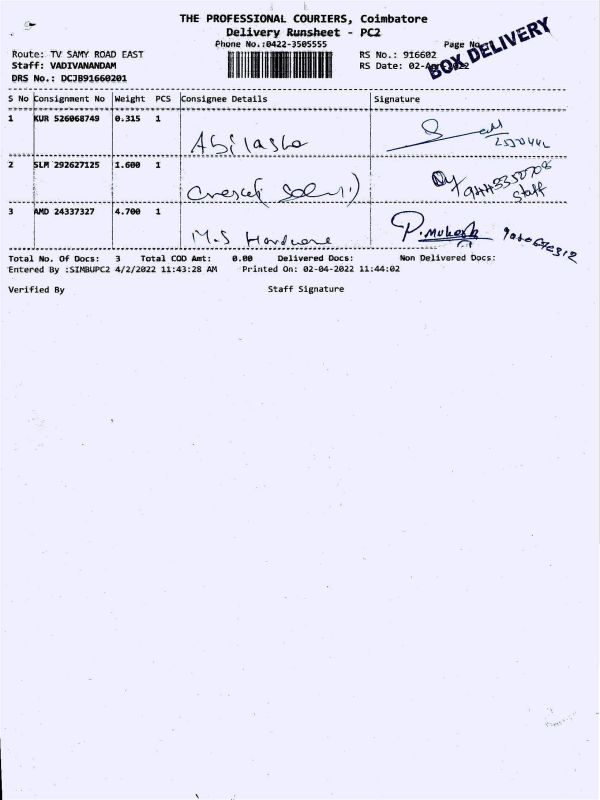 THE PROFESSIONAL COURIERS, Coimbatore
Delivery Runsheet - PC2
Phone No.:0422-3505555
Page No
BOX DELIVERY
Route: TV SAMY ROAD EAST
RS No.: 916602
Staff: VADIVANANDAM
RS Date: 02-Apr-2022
DRS No.: DCJB91660201
S No Consignment No Weight PCS Consignee Details Signature
1 KUR 526068749 0.315 1 Abilasha
2 SLM 292627125 1.600 1 9443350708
Staff
3 AMD 24337327 4.700 1 M.S Hardware P.Mukesh
Total No. Of Docs: 3 Total COD Amt: 0.00 Delivered Docs: Non Delivered Docs:
Entered By :SIMBUPC2 4/2/2022 11:43:28 AM Printed On: 02-04-2022 11:44:02
Verified By Staff Signature